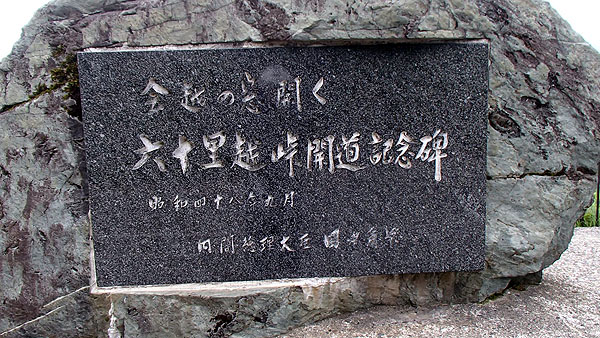 会越の窓開く
六十里越峠開道記念碑
昭和四十八年九月
内閣総理大臣 田中角栄